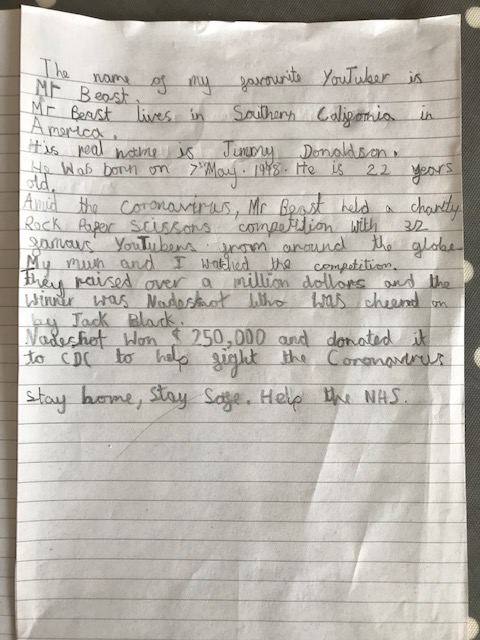 The name of my favourite YouTuber is
Mr Beast.
Mr Beast lives in Southern California in
America.
His real name is Jimmy Donaldson.
He was born on 7th May. 1998. He is 22 years
old.
Amid the Coronavirus, Mr Beast held a charity
Rock Paper Scissors competition with 32
famous YouTubers from around the globe
My mum and I watched the competition.
They raised over a million dollars and the
winner was Nadeshot who was cheered on
by Jack Black.
Nadeshot won $250,000 and donated it
to CDC to help fight the Coronavirus
Stay home, Stay Safe. Help the NHS.